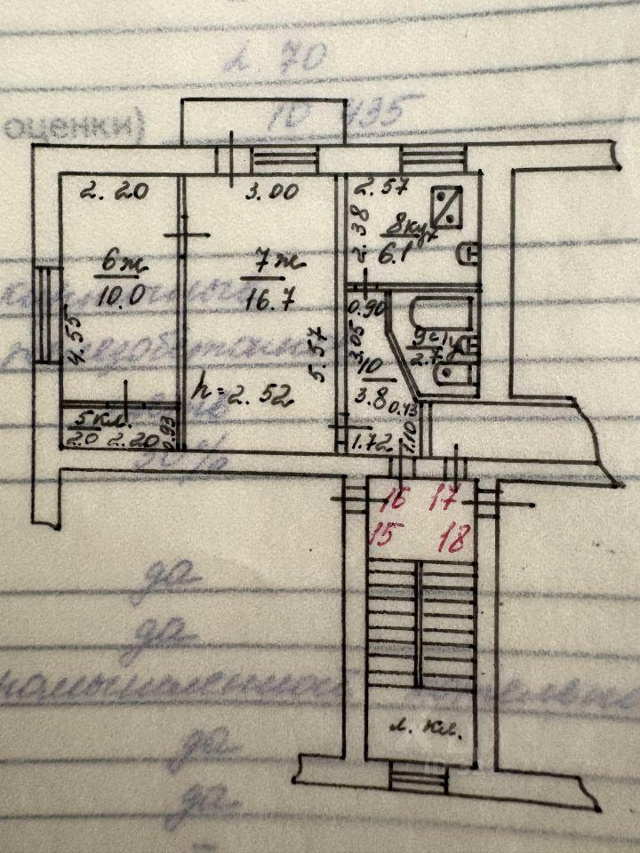 2.70
10 435
оценки)
2.20
3.00
2.57
2.38
8 кух
6.1
6 ж
10.0
7 ж
16.7
4.55
5.57
0.90
3.05
9 с/у
2.7
10
3.8
0.43
h=2.52
5 кл.
2.0
2.20
0.93
1.72
1.10
50%
16 17
15 18
да
да
л. кл.
да
да